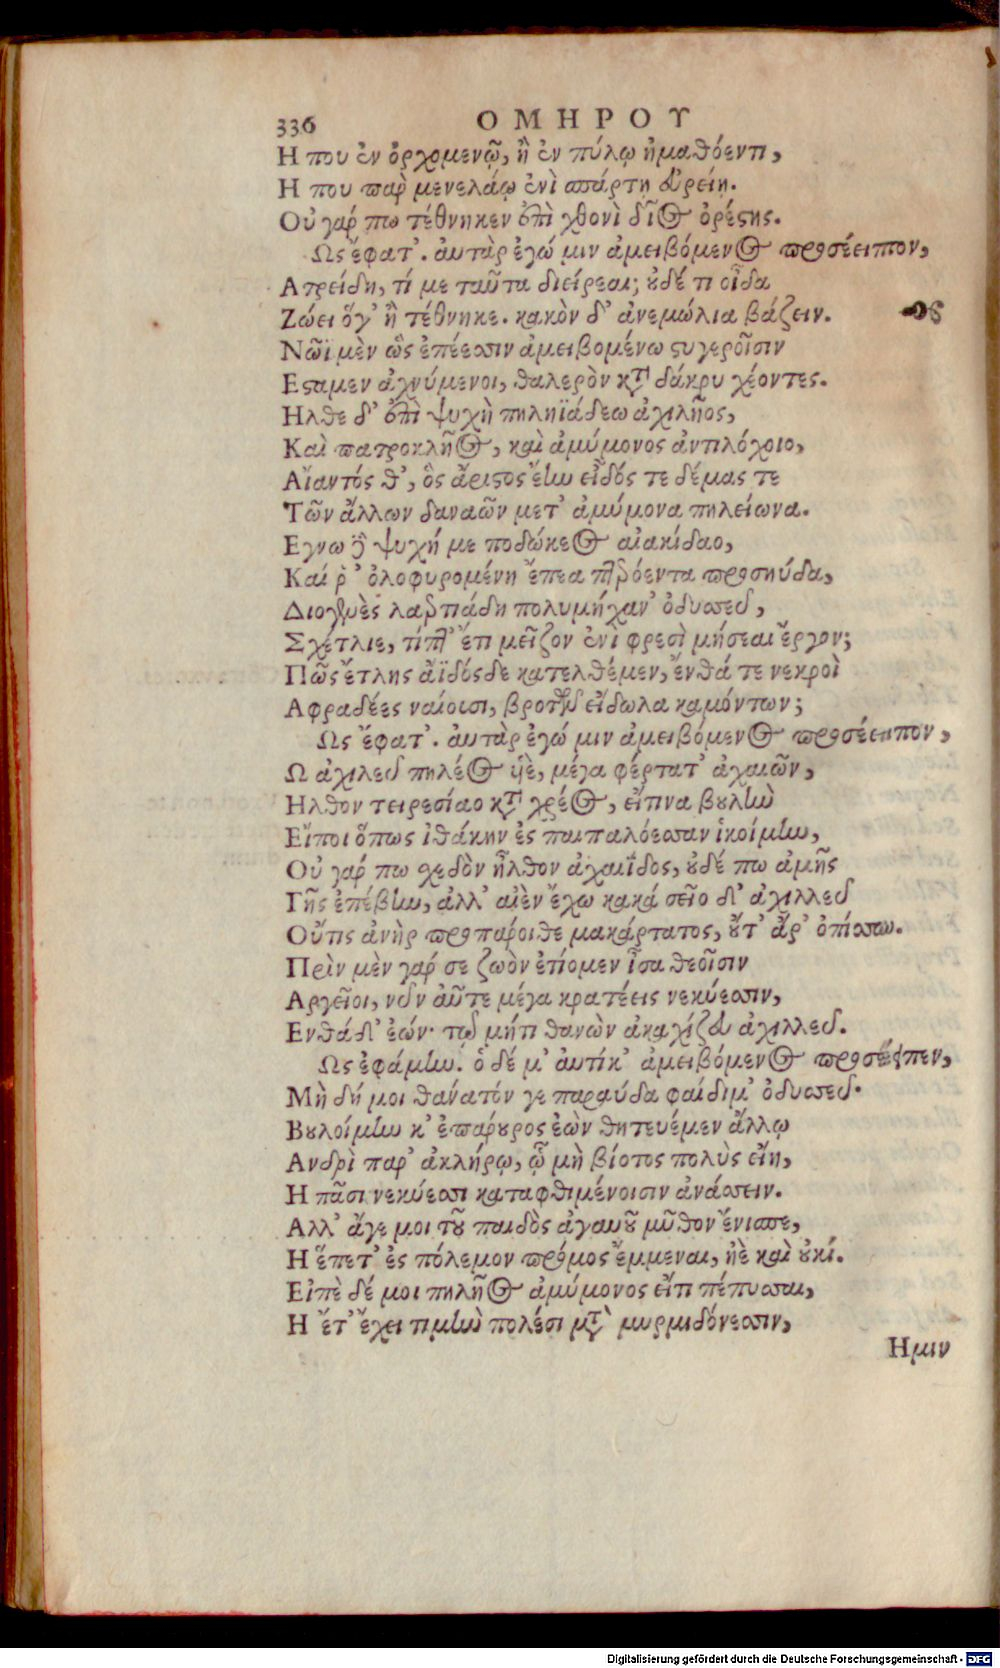 336 ΟΜΗΡΟΥ
Η που ἐν ὀρχομενῷ, ἢ ἐν πύλῳ ἠμαθόεντι,
Η που παρ̀ μενελάῳ ἐνὶ σπάρτῃ εὐρείῃ.
Οὐ γάρ πω τέθνηκεν ἐπὶ χθονὶ δῖος ὀρέςης.
Ως ἔφατ'. ἀυτὰρ ἐγώ μιν ἀμειβόμενος προσέειπον,
Ατρείδη, τί με ταῦτα διείρεαι; ȣδέ τι οἶδα
Ζώει ὅγ' ἢ τέθνηκε. κακὸν δ' ἀνεμώλια βάζειν.
Νῶϊ μὲν ὣς ἐπέεσσιν ἀμειβομένω ςυγεροῖσιν
Εςαμεν ἀχνύμενοι, θαλερὸν κτ̀ δάκρυ χέοντες.
Ηλθε δ' ἐπὶ ψυχὴ πηληϊάδεω ἀχιλῆος,
Καὶ πατροκλῆος, καὶ ἀμύμονος ἀντιλόχοιο,
Αἴαντός θ', ὃς ἄριςος ἔην εἶδός τε δέμας τε
Τῶν ἄλλων δαναῶν μετ' ἀμύμονα πηλείωνα.
Εγνω δὲ ψυχή με ποδώκεος αἰακίδαο,
Καί ῥ' ὀλοφυρομένη ἔπεα πτερόεντα προσηύδα,
Διογενὲς λαερτιάδη πολυμήχαν' ὀδυσσεῦ,
Σχέτλιε, τίπτ' ἔτι μεῖζον ἐνὶ φρεσὶ μήσεαι ἔργον;
Πῶς ἔτλης ἄϊδόςδε κατελθέμεν, ἔνθά τε νεκροὶ
Αφραδέες ναίουσι, βροτῶν εἴδωλα καμόντων;
Ως ἔφατ'. ἀυτὰρ ἐγώ μιν ἀμειβόμενος προσέειπον,
Ω ἀχιλεῦ πηλέος ὑὲ, μέγα φέρτατ' ἀχαιῶν,
Ηλθον τειρεσίαο κτ̀ χρέος, εἴτινα βȣλὴν
Εἴποι ὅπως ἰθάκην ἐς παιπαλόεσσαν ἱκοίμην,
Οὐ γάρ πω χεδὸν ἦλθον ἀχαιΐδος, ȣδέ πω ἀμῆς
Γῆς ἐπέβην, ἀλλ' αἰὲν ἔχω κακά σεῖο δ' ἀχιλλεῦ
Οὔτις ἀνὴρ προπάροιθε μακάρτατος, ȣ̓́τ' ἄρ' ὀπίσσω.
Πρὶν μὲν γάρ σε ζωὸν ἐτίομεν ἶσα θεοῖσιν
Αργεῖοι, νῦν αὖτε μέγα κρατέεις νεκύεσσιν,
Ενθάδ' ἐών· τῷ μήτι θανὼν ἀκαχίζευ ἀχιλλεῦ.
Ως ἐφάμην. ὁ δέ μ' ἀυτίκ' ἀμειβόμενος προσέειπεν,
Μὴ δή μοι θάνατόν γε παραύδα φαίδιμ' ὀδυσσεῦ·
Βȣλοίμην κ' ἐπάρȣρος ἐὼν θητευέμεν ἄλλῳ
Ανδρὶ παρ' ἀκλήρῳ, ᾧ μὴ βίοτος πολὺς εἴη,
Η πᾶσι νεκύεσσι καταφθιμένοισιν ἀνάσσειν.
Αλλ' ἄγε μοι τȣ͂ παιδὸς ἀγαυȣ͂ μῦθον ἔνισπε,
Η ἕπετ' ἐς πόλεμον πρόμος ἔμμεναι, ἠὲ καὶ ȣκί.
Εἰπὲ δέ μοι πηλῆος ἀμύμονος εἴτι πέπυσσαι,
Η ἔτ' ἔχει τιμὴν πολέσι μτ̀ μυρμιδόνεσσιν,
Ημιν
Digitalisierung gefördert durch die Deutsche Forschungsgemeinschaft - DFG